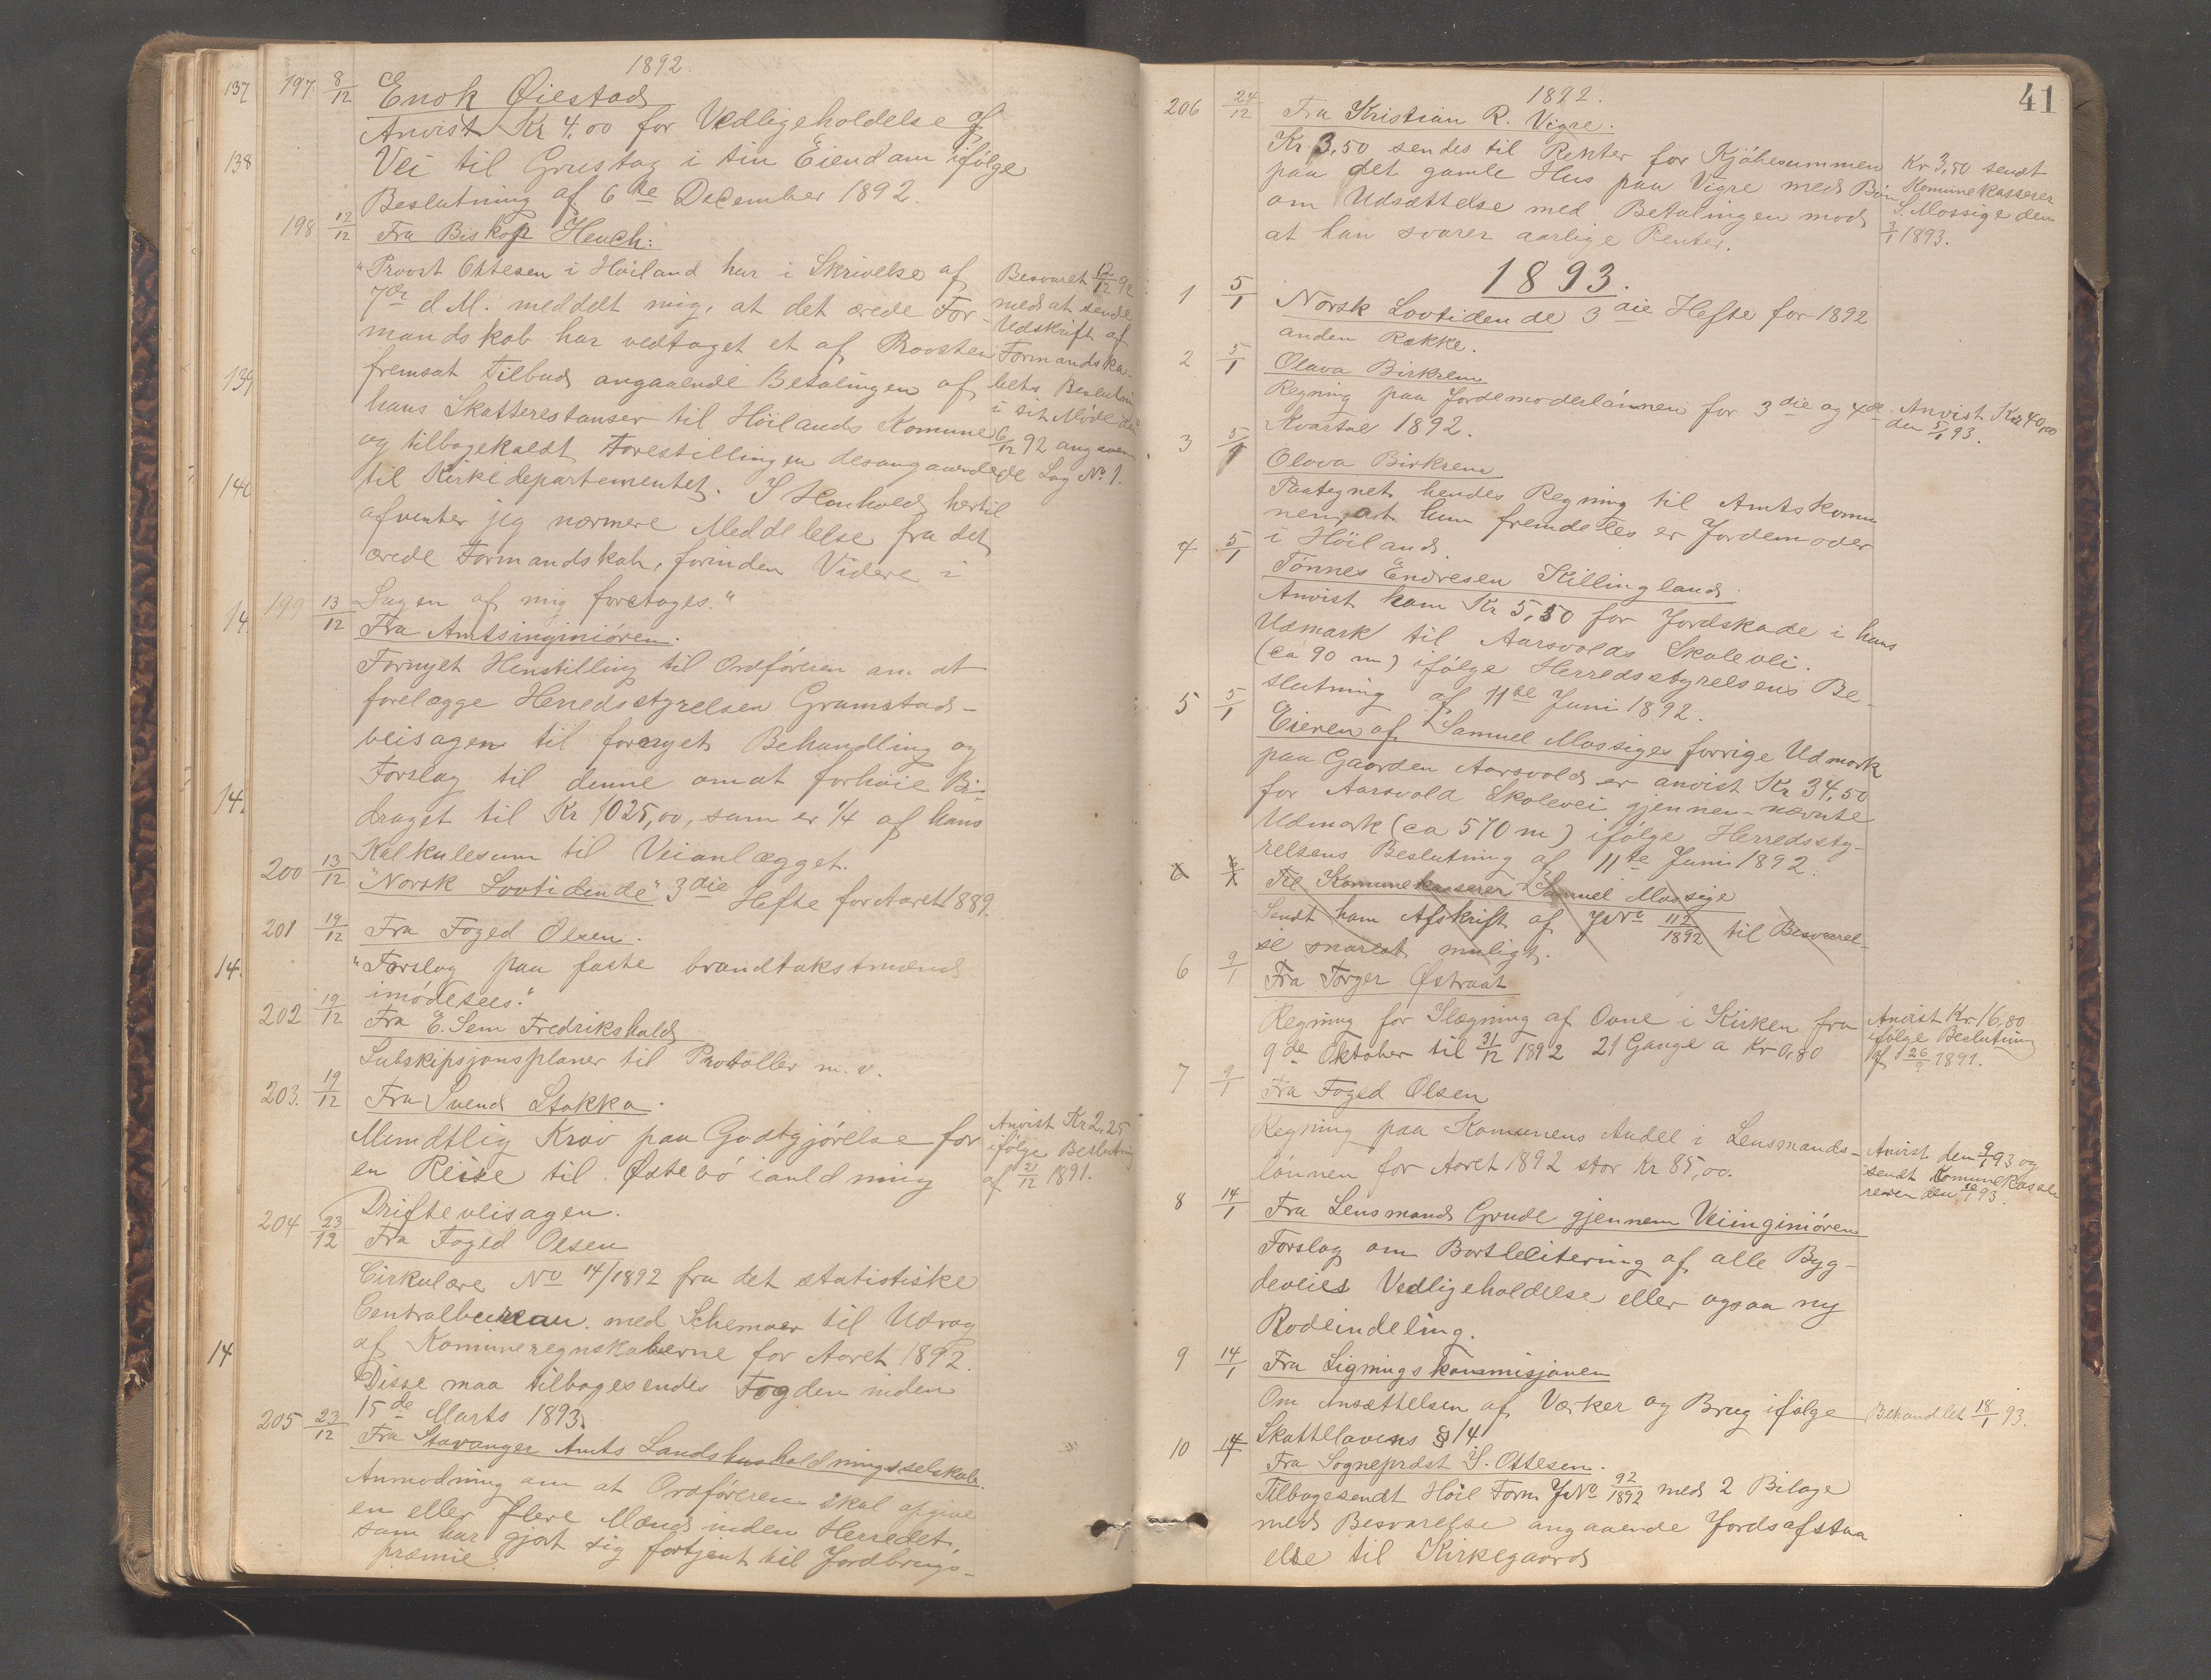 1892.
137
197. 8/12 Enok Øiestad
Anvist Kr 4.00 for Vedligeholdelse af
138
Vei til Grustag i sin Eiendom ifølge
Beslutning af 6te December 1892.
198 12/12 Fra Biskop Heuch:
"Provst Ottesen i Høiland har i Skrivelse af
7de d.M. meddelt mig, at det ærede For-
mandskab har vedtaget et af Provsten
139
fremsat Tilbud angaaende Betalingen af
hans Skatterestanser til Høilands Komune
og tilbagekaldt Forestillingen desangaaende
140
til Kirkedepartementet. I Henhold hertil
afventer jeg nærmere Meddelelse fra det
ærede Formandskab, forinden Videre i
Sagen af mig foretages."
Besvaret 12/12 92
med at sende
Udskrift af
Formandska-
bets Beslutnin
i sit Møde den
6/12 92 angaaen
de Sag No 1.
14
199 13/12 Fra Amtsinginiøren.
Fornyet Henstilling til Ordføreren om at
forelægge Herredsstyrelsen Gramstads-
veisagen til fornyet Behandling og
Forslag til denne om at forhøie Bi-
14.
draget til Kr 1025,00, som er 1/4 af hans
Kalkulesum til Veianlægget.
200 13/12 "Norsk Lovtidende" 3die Hefte for Aaret 1889.
201 19/12 Fra Foged Olsen.
14.
"Forslag paa faste brandtakstmænd
imødesees."
202 19/12 Fra E. Sem Fredrikshald
Subskipsjonsplaner til Protoller m.v.
203. 19/12 Fra Svend Stokka.
Mundtlig Krav paa Godtgjørelse for
en Reise til Østebø ianldning
Drifteveisagen.
Anvist Kr 2,25
ifølge Beslutning
af 21/12 1891.
204 23/12 Fra Foged Olsen
Cirkulære No 14/1892 fra det statistiske
Centralbureau med Schemaer til Udrag
14
af Komuneregnskaberne for Aaret 1892.
Disse maa tilbagesendes Fogden inden
15de Marts 1893.
205 23/12 Fra Stavanger Amts Landshusholdningsselskab.
Anmodning om at Ordføreren skal opgive
en eller flere Mænd inden Herredet,
som har gjort sig fortjent til Jordbrugs-
præmie.
41
1892.
206 24/12 Fra Kristian R. Vigre.
Kr 3,50 sendes til Renter for Kjøbesummen
paa det gamle Hus paa Vigre med Bøn
om Udsættelse med Betalingen mod
at han svarer aarlige Renter.
Kr 3,50 sendt
Komunekasserer
S. Mossige den
3/1 1893.
1893.
1 5/1 Norsk Lovtidende 3die Hefte for 1892
anden Række.
2 5/1 Olava Birkrem
Regning paa Jordemoderlønnen for 3die og 4de
Kvartal 1892.
Anvist Kr 40,00
den 5/1 93.
3 5/1 Olava Birkrem
Paategnet hendes Regning til Amtskomu
nen, at hun fremdeles er Jordemoder
i Høiland.
4 5/1 Tønnes Endresen Killingland.
Anvist ham Kr 5,50 for Jordskade i hans
Udmark til Aarsvolds Skolevei.
(ca 90 m) ifølge Herredsstyrelsens Be-
slutning af 11te Juni 1892.
5 5/1 Eieren af Samuel Mossiges forrige Udmark
paa Gaarden Aarsvold er anvist Kr 34,50
for Aarsvold Skolevei gjennem nævnte
Udmark (ca 570 m) ifølge Herredssty-
relsens Beslutning af 11te Juni 1892.
6 6/1 Til Komunekasserer Samuel Mossige
Sendt ham Afskrift af JNo 112/1892 til Besvarel-
se snarest muligt.
6 9/1 Fra Torger Østraat
Regning for Ilægning af Ovne i Kirken fra
9de Oktober til 31/12 1892 21 Gange a Kr 0,80
Anvist Kr. 16,80
ifølge Beslutning
af 26/9 1891.
7 9/1 Fra Foged Olsen
Regning paa Komunens Andel i Lensmands-
lønnen for Aaret 1892 stor Kr 85,00.
Anvist den 9/1 93 og
sendt Komunekasse
reren den 10/1 93.
8 14/1 Fra Lensmand Grude gjennem Veiinginiøren
Forslag om Bortlicitering af alle Byg-
deveies Vedligeholdelse eller ogsaa ny
Rodeindeling.
9 14/1 Fra Ligningskommisjonen
Om Ansættelsen af Værker og Brug ifølge
Skattelovens § 14
Behandlet 18/1 93.
10 14/1 Fra Sogneprdst S. Ottesen.
Tilbagesendt Høil Form JNo 92/1892 med 2 Bilage
med Besvarelse angaaende Jordsafstaa
else til Kirkegaard